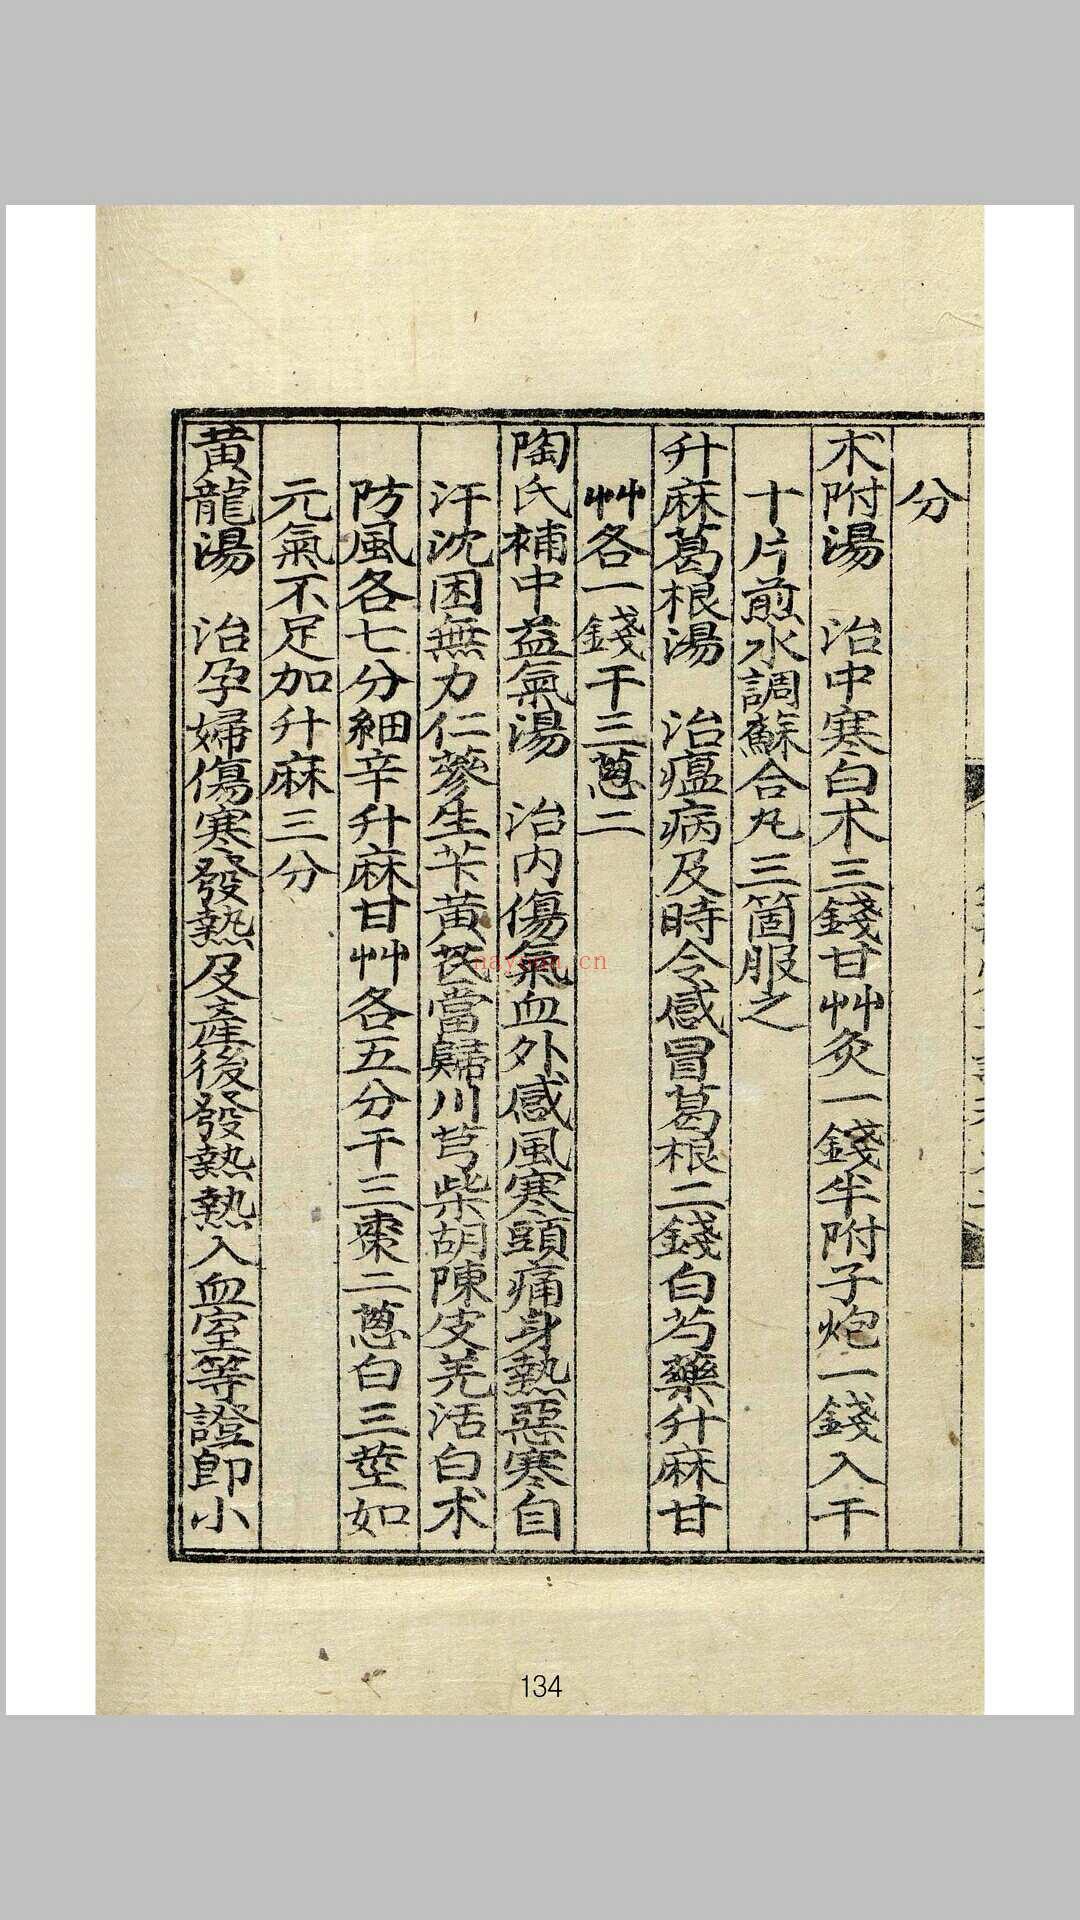 分
朮附湯　治中寒白朮三錢甘艸炙一錢半附子炮一錢入干
十片煎水調蘇合丸三箇服之
升麻葛根湯　治瘟病及時令感冒葛根二錢白芍藥升麻甘
艸各一錢干三蔥二
陶氏補中益氣湯　治內傷氣血外感風寒頭痛身熱惡寒自
汗沈困無力仁蔘生芐黃芪當歸川芎柴胡陳皮羌活白朮
防風各七分細辛升麻甘艸各五分干三棗二蔥白三莖如
元氣不足加升麻三分
黃龍湯　治孕婦傷寒發熱及產後發熱熱入血室等證即小
134